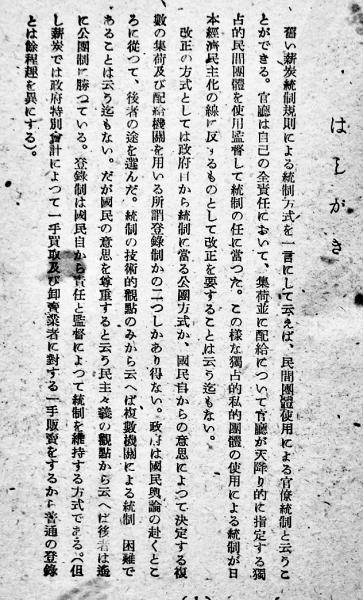 はしがき
舊い薪炭統制規則による統制方式を一言にして云えば、民間團體使用による官僚統制と云うこ
とができる。官廳は自己の全責任において、集荷並に配給について官廳が天降り的に指定する獨
占的民間團體を使用監督して統制の任に當つた。この様な獨占的私的團體の使用による統制が日
本經濟民主化の線に反するものとして改正を要することは云う迄もない。
改正の方式としては政府自から統制に當る公團方式か、國民自からの意思によつて決定する複
數の集荷及び配給機關を用いる所謂登錄制かの二つしかあり得ない。政府は國民輿論の赴くとこ
ろに從つて、後者の途を選んだ。統制の技術的觀點のみから云へば複數機關による統制 困難で
あることは云う迄もない。だが國民の意思を尊重すると云う民主々義の觀點から云へば後者は遙
に公團制に勝つている。登錄制は國民自から責任と監督によつて統制を維持する方式である。但
し薪炭では政府特別會計によつて一手買取及び卸賣業者に對する一手販賣をするから普通の登錄
とは餘程趣を異にする)。
(1)